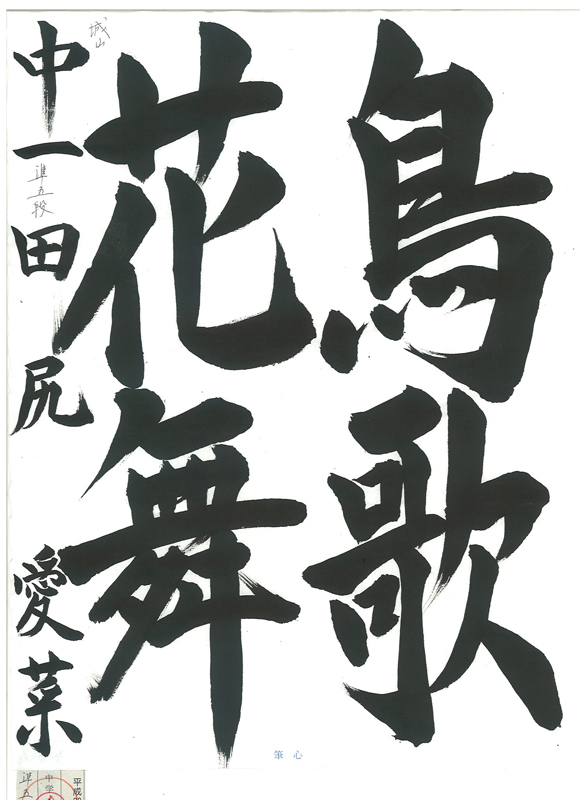 鳥歌
花舞
城山
中一 田尻 愛菜
準五段
筆心
平成
中学
準五